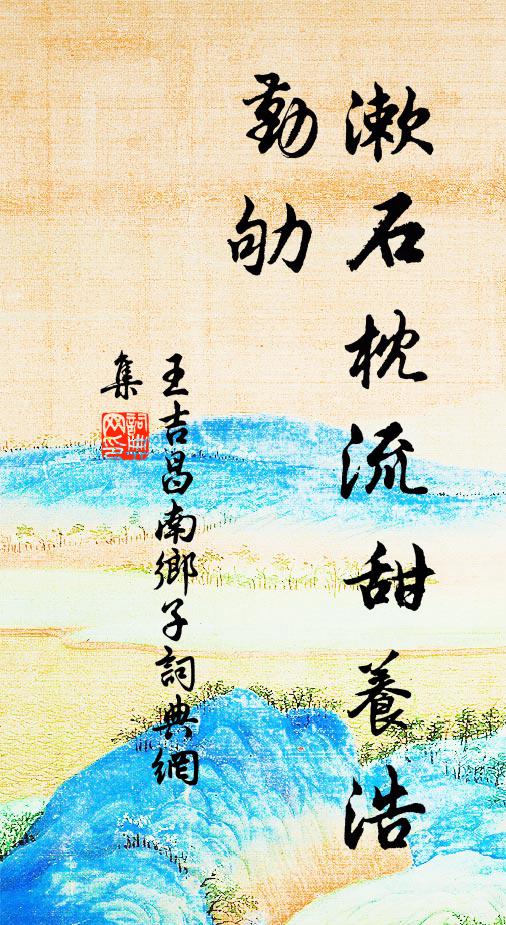 漱石枕流甜養浩
勤劬
王吉昌南鄉子詞典網
集